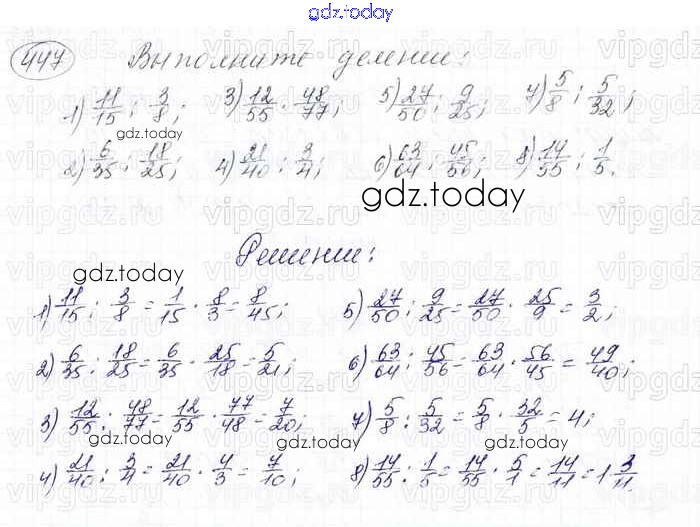 gdz.today
447 Выполните деление:
1) 11/15 : 3/8; 3) 12/55 : 48/77; 5) 27/50 : 9/25; 7) 5/8 : 5/32;
gdz.today
2) 6/35 : 18/25; 4) 21/40 : 3/4; 6) 63/64 : 45/56; 8) 14/55 : 1/5.
gdz.today
Решение:
gdz.today
1) 11/15 : 3/8 = 1/15 · 8/3 = 8/45; 5) 27/50 : 9/25 = 27/50 · 25/9 = 3/2;
2) 6/35 : 18/25 = 6/35 · 25/18 = 5/21; 6) 63/64 : 45/56 = 63/64 · 56/45 = 49/40;
3) 12/55 : 48/77 = 12/55 · 77/48 = 7/20; 7) 5/8 : 5/32 = 5/8 · 32/5 = 4;
gdz.today
gdz.today
4) 21/40 : 3/4 = 21/40 · 4/3 = 7/10; 8) 14/55 : 1/5 = 14/55 · 5/1 = 14/11 = 1 3/11.